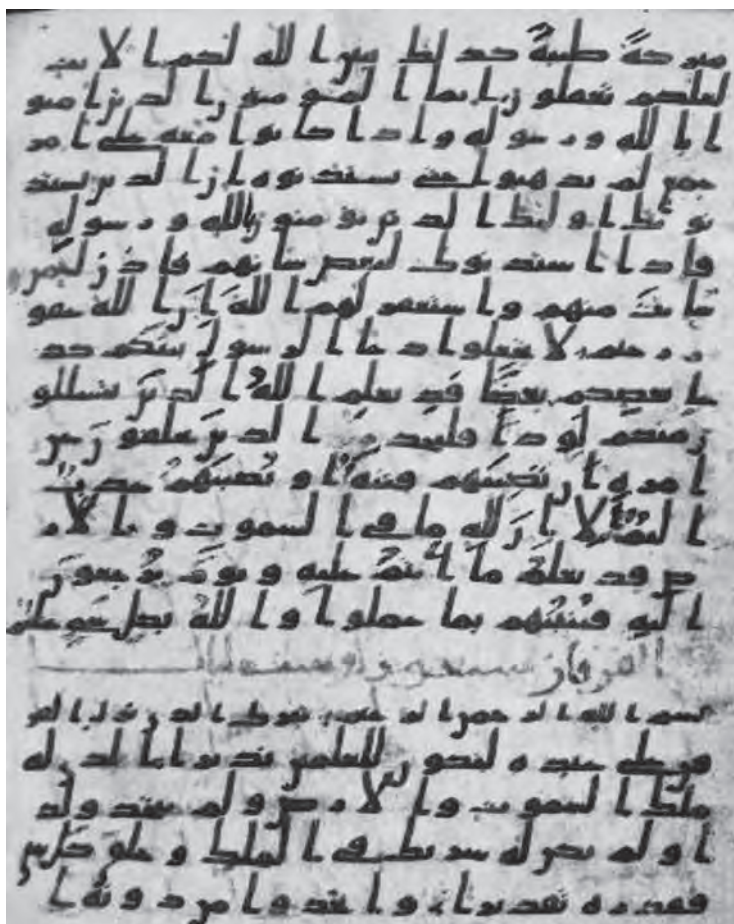 مبركة طيبة كذلك يبين الله لكم الايت
لعلكم تعقلون انما المومنون الذين امنو
ا بالله ورسوله واذا كانوا معه على امر
جمع لم يذهبوا حتى يستذنوه ان الذين يستذ
نونك اولئك الذين يومنون بالله ورسوله
فاذا استذنوك لبعض شانهم فاذن لمن
شئت منهم واستغفر لهم الله ان الله غفو
ر رحيم لا تجعلوا دعا الرسول بينكم كد
عا بعضكم بعضا قد يعلم الله الذين يتسللو
ن منكم لواذا فليحذر الذين يخلفون عن
امره ان تصيبهم فتنة او يصيبهم عذاب
اليم الا ان لله ما في السموت والار
ض قد يعلم ما انتم عليه ويوم يرجعون
اليه فينبئهم بما عملوا والله بكل شي عليم
الفرقان سبعون
بسم الله الرحمن الرحيم تبرك الذي نزل الفر
قن على عبده ليكون للعلمين نذيرا الذي له
ملك السموت والارض ولم يتخذ ولد
ا ولم يكن له شريك في الملك وخلق كل شي
فقدره تقديرا واتخذوا من دونه ا